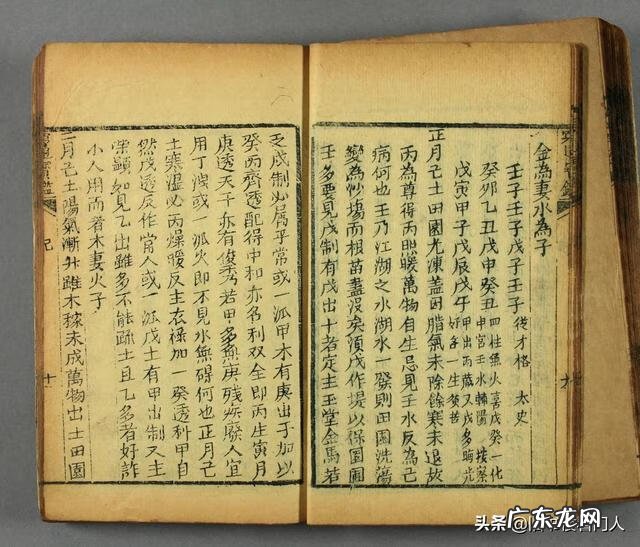 金為妻水為子
壬子壬子戊子壬子 從才格 太史
癸卯乙丑戊申癸丑 四柱無火喜戊癸一化
申宮壬水輔陽 按察
戊寅甲子戊辰戊午 甲出丙藏又戊多晦光
好子一生
正月己土田園尤凍蓋因臘氣未除餘寒未退故
丙為尊得丙照暖萬物自生忌見壬水反為己
病何也壬乃江湖之水湖水一發則田園洗蕩
變為沙場而根苗盡沒矣須戊作堤以保園圃
壬多要見戊制有戊出干者定主玉堂金馬若
乏戊制必属乎常或一派甲木有庚出于加以
癸丙齊透配得中和亦名利双全即丙生寅月
庚透天干亦有俊秀若甲多無庚殘疾廢人宜
用丁洩或一派火即不見水無碍何也正月己
土寒湿必丙燥暖反主衣禄加一癸透科甲自
然戊透反作常人或一派戊土有甲出制又主
荣顕如見乙出雖多不能疏土且乙多者好詐
小人用而者木妻火子
二月己土陽氣漸升雖木稼未成萬物出土田園
寶鑑
头条
门人
广东龙网